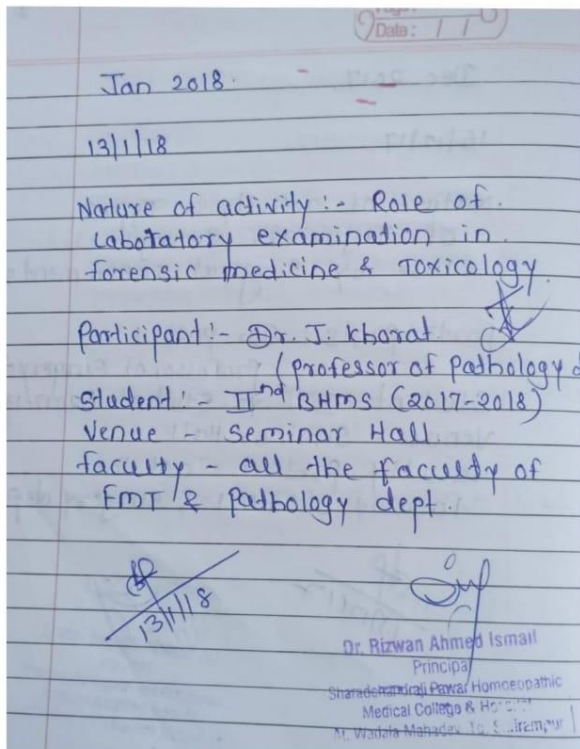 Date: / /
Jan 2018.
13/1/18
Nature of activity :- Role of.
Laboratory examination in.
forensic medicine & Toxicology.
Participant :- Dr. J. Kharat
(Professor of Pathology
Student :- IInd BHMS (2017-2018)
Venue - Seminar Hall.
faculty - all the faculty of
FMT & Pathology dept.
13/1/18
Dr. Rizwan Ahmed Ismail
Principal
Sharadchandraji Pawar Homoeopathic
Medical College &
At. Wadala Mahadev,